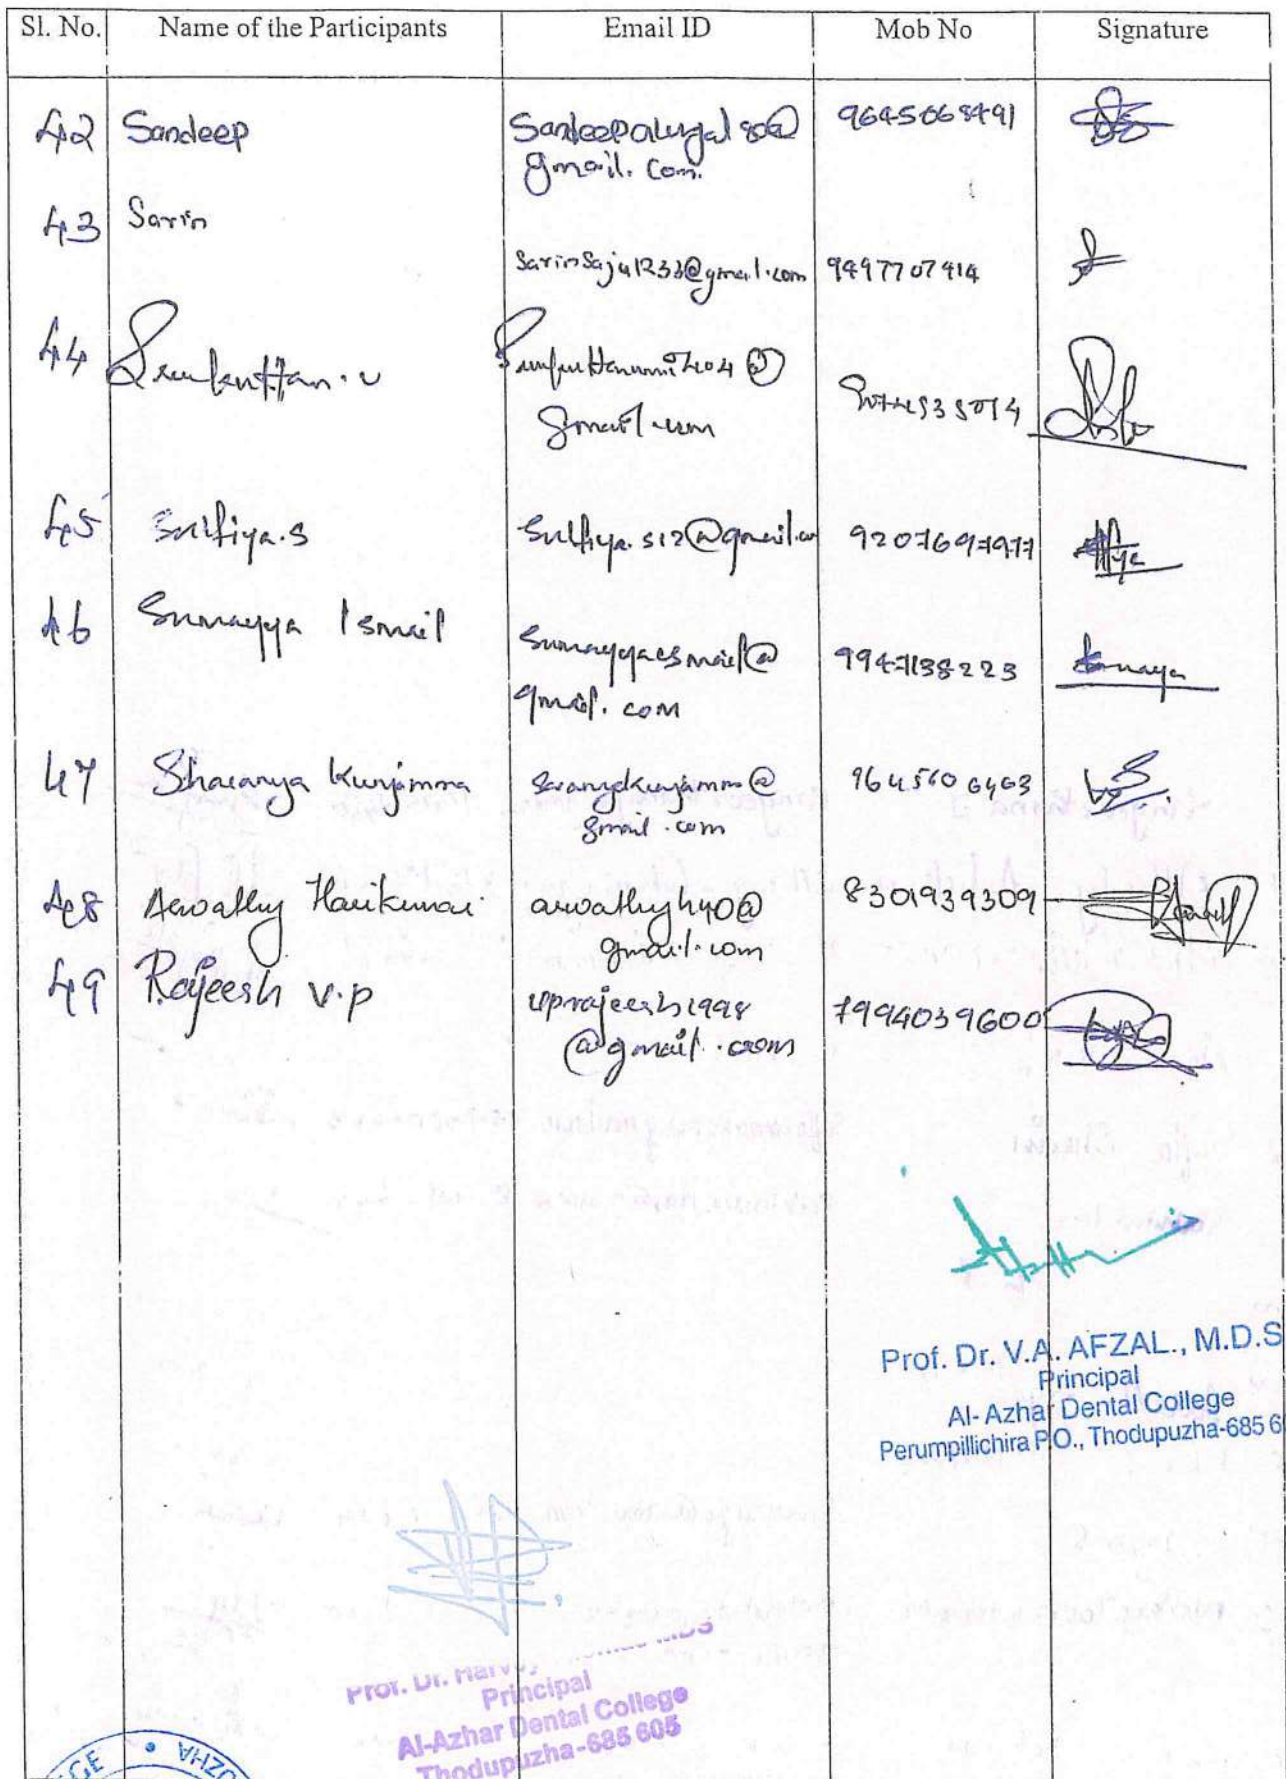 Sl. No. Name of the Participants Email ID Mob No Signature
42 Sandeep 9645068491
gmail.com.
43 Sarin
sarinsaju1233@gmail.com 9497707414
44
gmail.com
45 Sulfiya.S Sulfiya.s12@gmail.co 9207697977
46 Sumayya Ismail Sumayyaesmail@ 9947138223
gmail.com
47 Sharanya Kunjamma 9645606463
gmail.com
48 Aswathy Harikumar aswathyh40@ 8301939309
gmail.com
49 Rajeesh V.P vprajeesh1998 7994039600
@gmail.com
Prof. Dr. V.A. AFZAL., M.D.S
Principal
Al-Azhar Dental College
Perumpillichira P.O., Thodupuzha-685 6
Prof. Dr. MDS
Principal
Al-Azhar Dental College
Thodupuzha-685 605